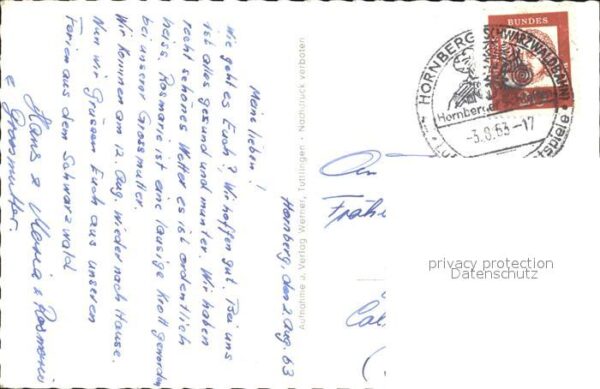 Hornberg, den 2. Aug. 63
Meine lieben!
Wie geht es Euch? Wir hoffen gut. Bei uns
ist alles gesund und munter. Wir haben
recht schönes Wetter es ist ordentlich
heiss. Rosmarie ist eine lausige Krott geworden
bei unserer Grossmutter.
Wir kommen am 12. Aug. wieder nach Hause.
Nun wir Grüssen Euch aus unseren
Ferien aus dem Schwarzwald
Hans & Maria & Rosmarie
& Grossmutter.
Aufnahme u. Verlag Werner, Tuttlingen - Nachdruck verboten
BUNDES
HORNBERG (SCHWARZWALDBAHN)
Hornberger
-3.8.63-17
privacy protection
Datenschutz